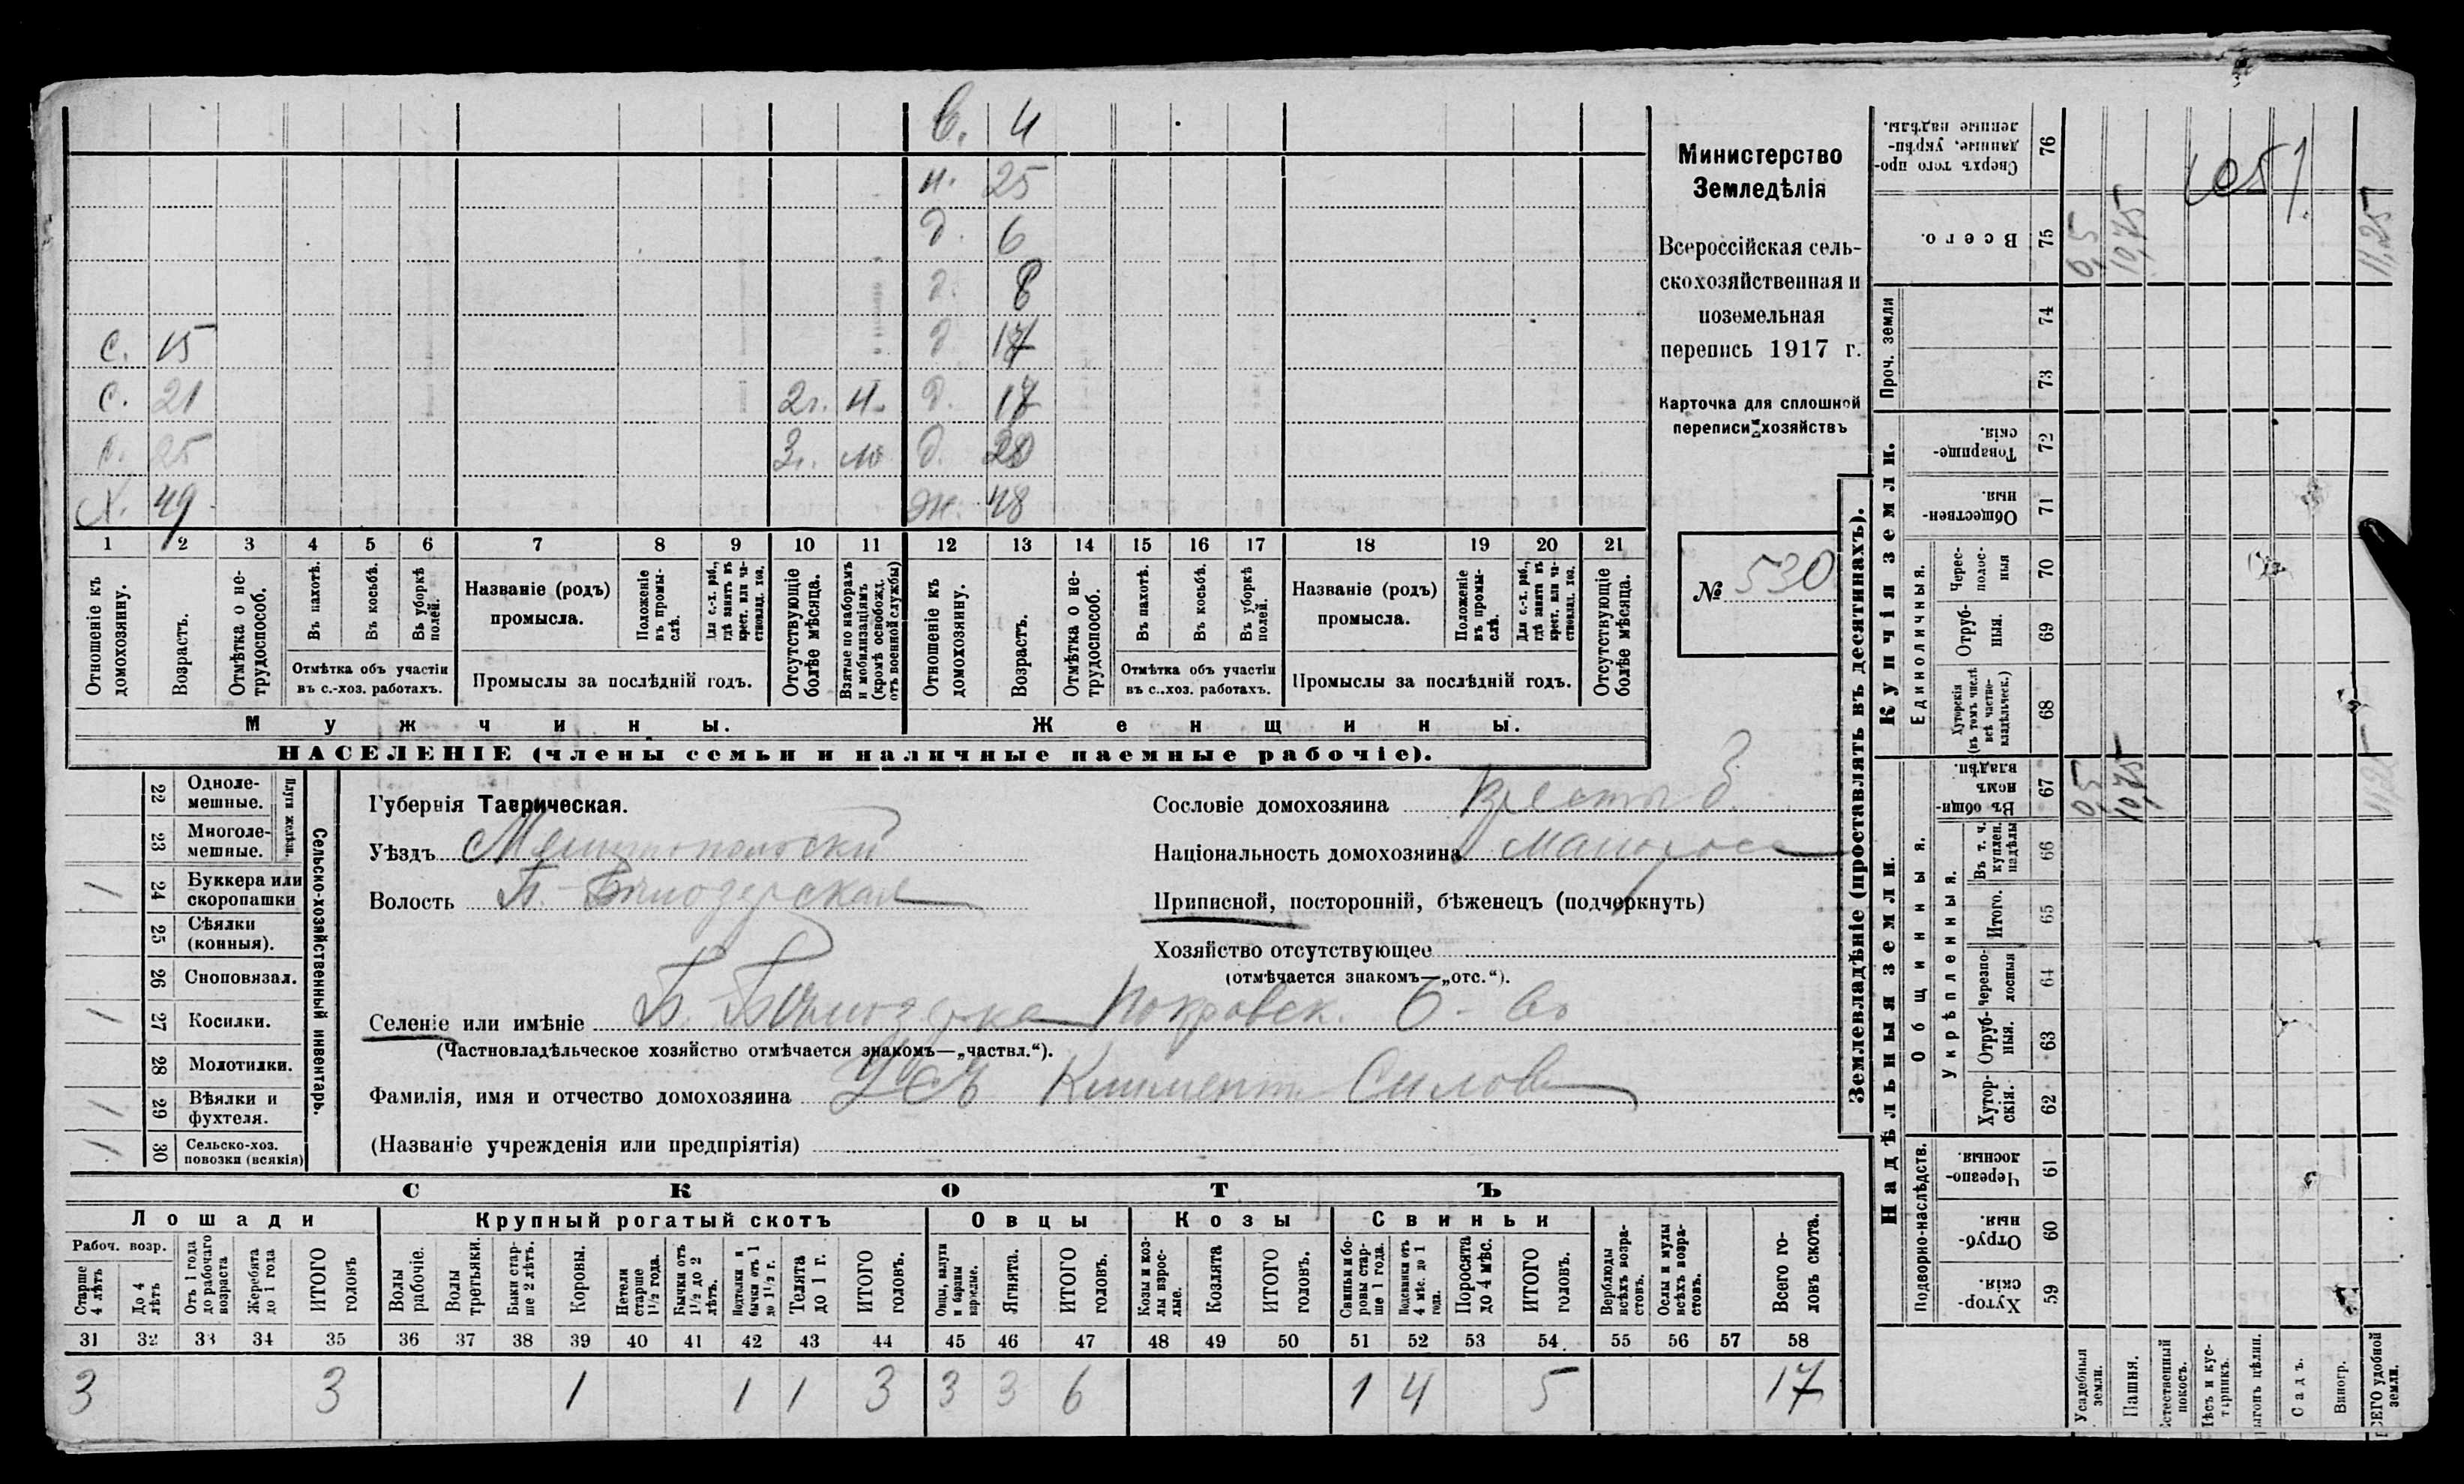 в. 4
н. 25
д. 6
д. 8
с. 15 д.
с. 21 2 г. д. 17
с. 25 3 г. д.
х. 49 ж. 48
1 2 3 4 5 6 7 8 9 10 11 12 13 14 15 16 17 18 19 20 21
Отношеніе къ домохозяину.
Возрастъ.
Отмѣтка о не-трудоспособ.
Въ пахотѣ.
Въ косьбѣ.
Въ уборкѣ полей.
Отмѣтка объ участіи
въ с.-хоз. работахъ.
Названіе (родъ)
промысла.
Положеніе въ промы-слѣ.
Для с.-х. раб., гдѣ занятъ въ крест. или ча-стновлад. хоз.
Промыслы за послѣдній годъ.
Отсутствующіе болѣе мѣсяца.
Взятые по наборамъ и мобилизаціямъ (кромѣ освобожд. отъ военной службы)
Отношеніе къ домохозяину.
Возрастъ.
Отмѣтка о не-трудоспособ.
Въ пахотѣ.
Въ косьбѣ.
Въ уборкѣ полей.
Отмѣтка объ участіи
въ с..хоз. работахъ.
Названіе (родъ)
промысла.
Положеніе въ промы-слѣ.
Для с.-х. раб., гдѣ занята въ крест. или ча-стновлад. хоз.
Промыслы за послѣдній годъ.
Отсутствующіе болѣе мѣсяца.
Мужчины. Женщины.
НАСЕЛЕНІЕ (члены семьи и наличные наемные рабочіе).
Министерство
Земледѣлія
Всероссійская сель-
скохозяйственная и
поземельная
перепись 1917 г.
Карточка для сплошной
переписи хозяйствъ
№ 530
22 Одноле-мешные.
23 Многоле-мешные.
Плуги желѣзн.
/ 24 Буккера или скоропашки
25 Сѣялки (конныя).
26 Сноповязал.
/ 27 Косилки.
28 Молотилки.
/ 29 Вѣялки и фухтеля.
/ 30 Сельско-хоз. повозки (всякія)
Сельско-хозяйственный инвентарь.
Губернія Таврическая.
Уѣздъ Мелитопольскій
Волость Б.-Бѣлозерская
Селеніе или имѣніе Б. Бѣлозерка Покровск. О-во
(Частновладѣльческое хозяйство отмѣчается знакомъ—„частвл.“).
Фамилія, имя и отчество домохозяина Усъ Климентъ Силов
(Названіе учрежденія или предпріятія)
Сословіе домохозяина
Національность домохозяина Малоросс
Приписной, посторонній, бѣженецъ (подчеркнуть)
Хозяйство отсутствующее
(отмѣчается знакомъ—„отс.“).
СКОТЪ
Лошади Крупный рогатый скотъ Овцы Козы Свиньи
Рабоч. возр.
Старше 4 лѣтъ
До 4 лѣтъ
Отъ 1 года до рабочаго возраста
Жеребята до 1 года
ИТОГО головъ
Волы рабочіе.
Волы третьяки.
Быки стар-ше 2 лѣтъ.
Коровы.
Нетели старше 1½ года.
Бычки отъ 1½ до 2 лѣтъ.
Подтелки и бычки отъ 1 до 1½ г.
Телята до 1 г.
ИТОГО головъ.
Овцы, валухи и бараны взрослые.
Ягнята.
ИТОГО головъ.
Козы и коз-лы взрос-лые.
Козлята
ИТОГО головъ.
Свиньи и бо-ровы стар-ше 1 года.
Подсвинки отъ 4 мѣс. до 1 года.
Поросята до 4 мѣс.
ИТОГО головъ.
Верблюды всѣхъ возра-стовъ.
Ослы и мулы всѣхъ возра-стовъ.
Всего го-ловъ скота.
31 32 33 34 35 36 37 38 39 40 41 42 43 44 45 46 47 48 49 50 51 52 53 54 55 56 57 58
3 3 1 1 1 3 3 3 6 1 4 5 17
Землевладѣніе (проставлять въ десятинахъ).
Купчія земли.
Надѣльныя земли.
Сверхъ того про-данные, укрѣп-ленные надѣлы. 76
1051
Всего. 75 0,5 10,75 11,25
Проч. земли 74
73
Товарище-скія. 72
Обществен-ныя. 71
Единоличныя.
Черес-полос-ныя 70
Отруб-ныя. 69
Хуторскія (въ томъ числѣ всѣ частно-владѣльческ.) 68
Общинныя.
Въ общи-номъ владѣн. 67 0,5 10,75 11,25
Укрѣпленныя.
Въ т. ч. куплен. надѣлы 66
Итого. 65
Черезпо-лосныя 64
Отруб-ныя. 63
Хутор-скія. 62
Подворно-наслѣдств.
Черезпо-лосныя. 61
Отруб-ныя. 60
Хутор-скія. 59
Усадебныя земли.
Пашня.
Естественный покосъ.
Лѣсъ и кус-тарникъ.
Выгонъ цѣлин.
Садъ.
Виногр.
ВСЕГО удобной земли.